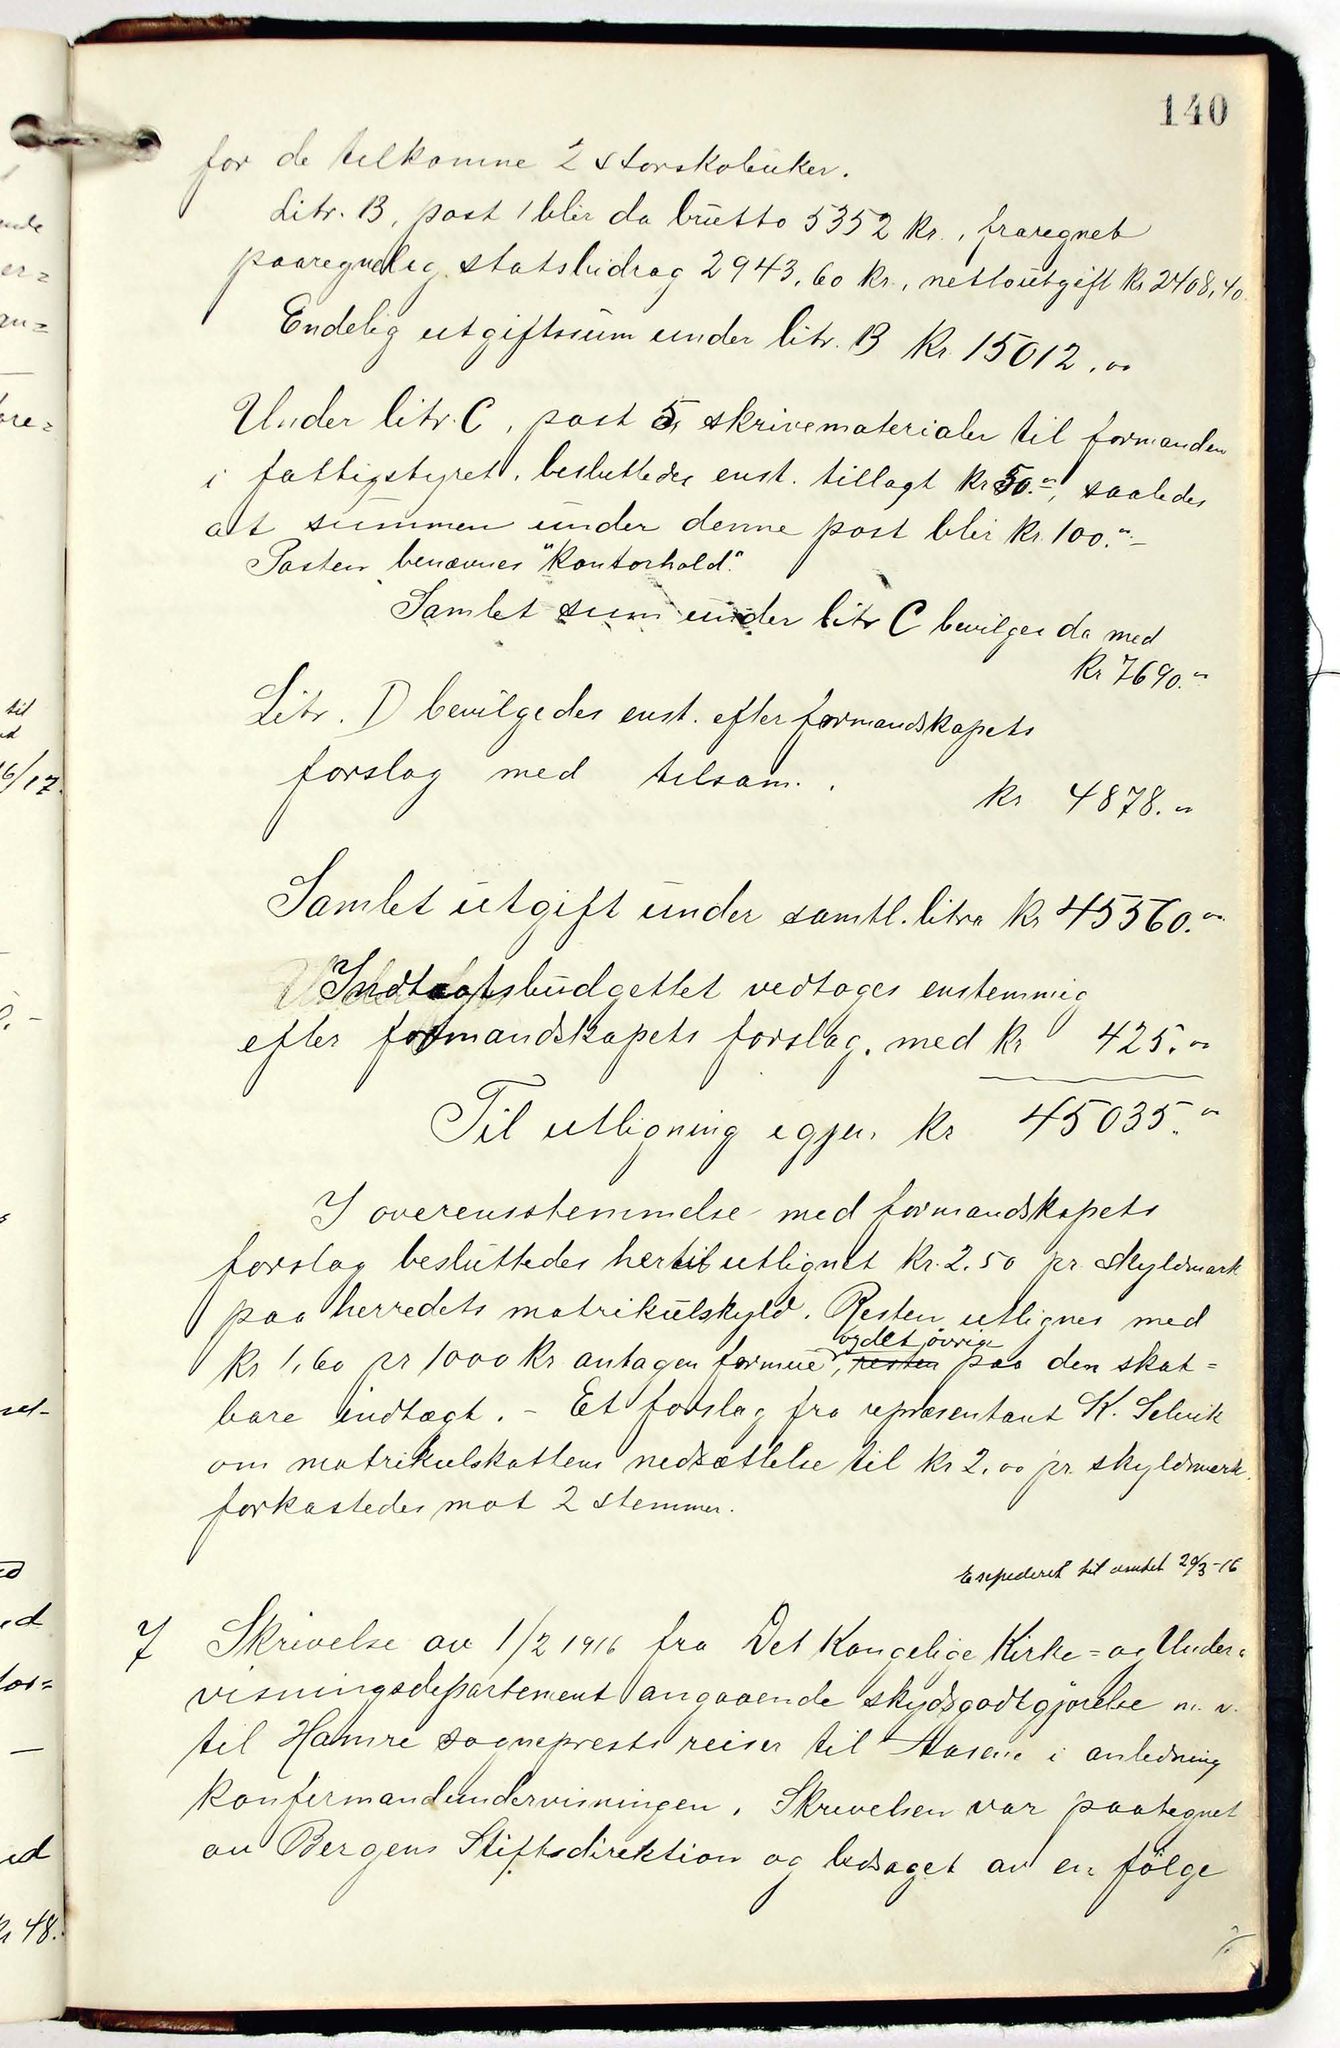 140
for de tilkomne 2 storskoleuker.
Litr. B, post 1 blir da brutto 5352 kr., fraregnet
paaregnelig statsbidrag 2943,60 kr., nettoutgift kr 2408,40.
Endelig utgiftssum under litr. B kr. 15012,00
Under litr. C, post 5, skrivematerialer til formanden
i fattigstyret, besluttedes enst. tillagt kr 50.00, saaledes
at summen under denne post blir kr. 100.00 –
Posten benævnes "Kontorhold".
Samlet sum under litr C bevilges da med
kr 7690.00
Litr. D bevilgedes enst. efter formandskapets
forslag med tilsam. . kr 4878.00
Samlet utgift under samtl. litra kr 45560.00
Indtægtsbudgettet vedtages enstemmig
efter formandskapets forslag. med kr 425.00
Til utligning igjen kr 45035.00
I overensstemmelse med formandskapets
forslag besluttedes hertil utlignet kr. 2.50 pr. skyldmark
paa herredets matrikulskyld. Resten utlignes med
og det övrige
kr 1,60 pr 1000 kr antagen formue, resten paa den skat=
bare indtægt. – Et forslag fra repræsentant K. Selvik
om matrikulskattens nedsættelse til kr 2,00 pr. skyldmark.
forkastedes mot 2 stemmer.
Expederet til amtet 20/3-16
7 Skrivelse av 1/2 1916 fra Det Kongelige Kirke= og Under=
visningsdepartement angaaende skydsgodtgjørelse m. v.
til Hamre sogneprests reiser til Aasene i anledning
konfirmandundervisningen. Skrivelsen var paategnet
av Bergens Stiftsdirektion og ledsaget av en fölge